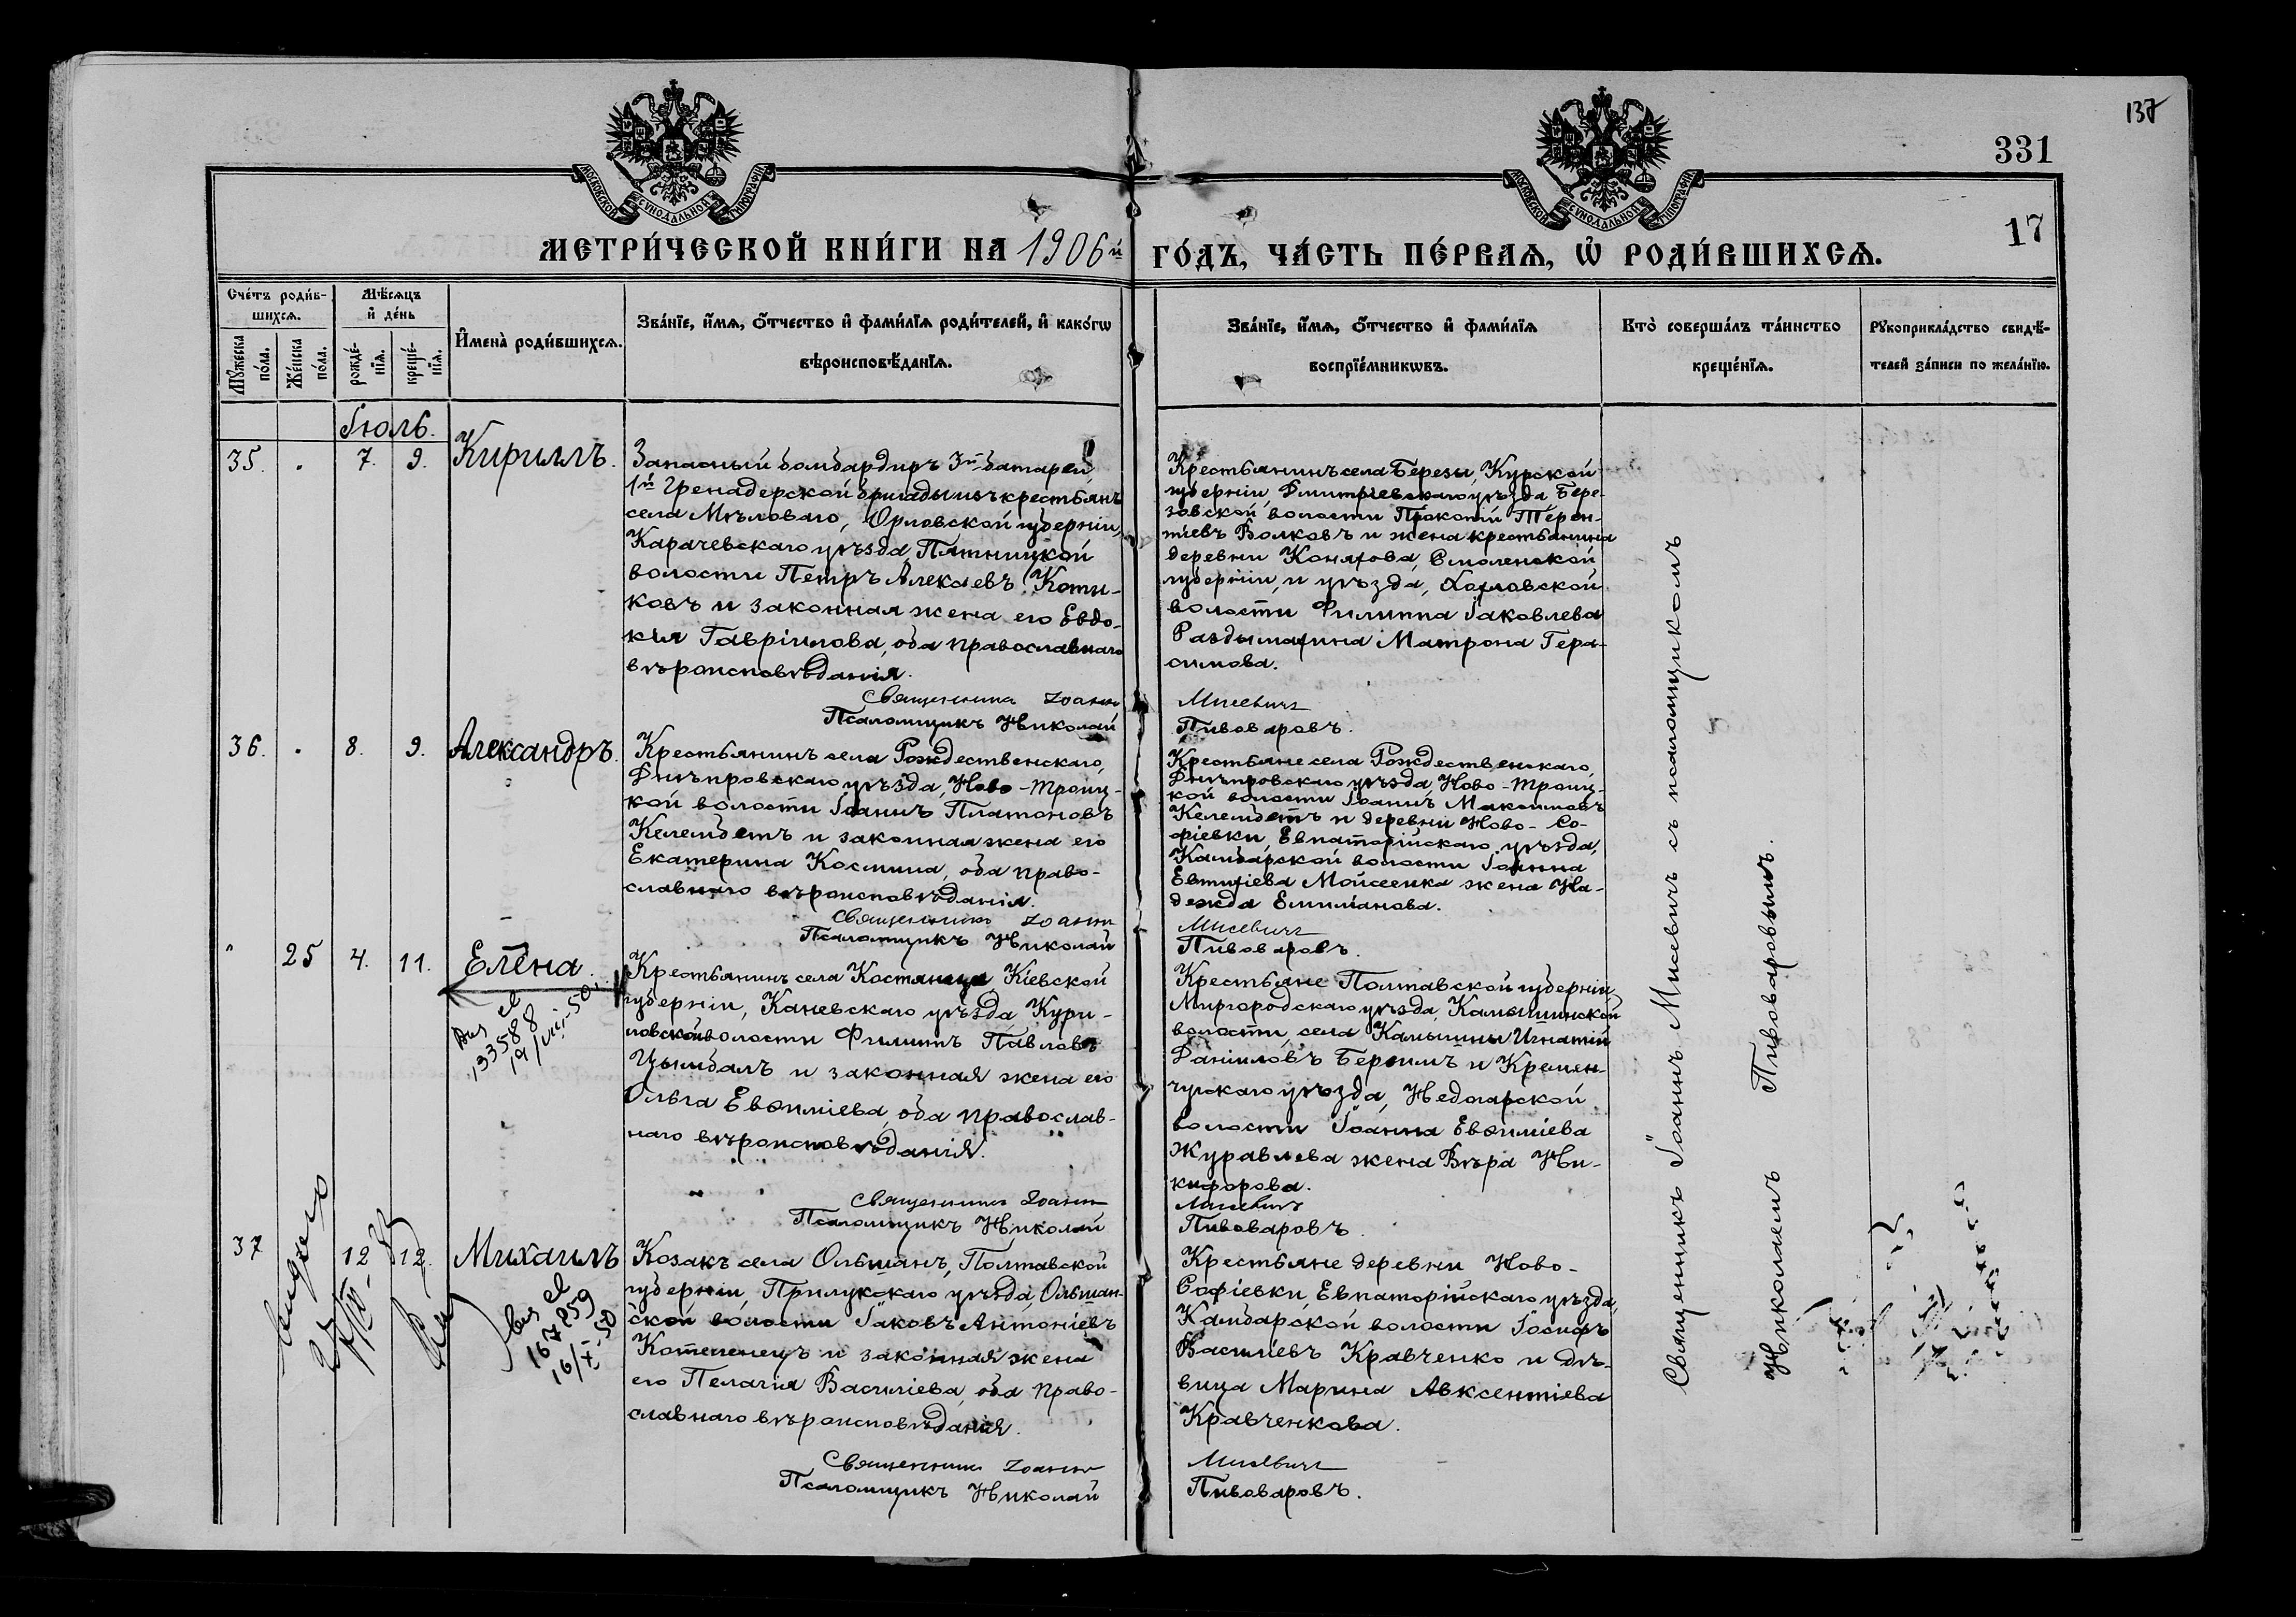 137
331
17
МОСКОВСКОЙ СУНОДАЛЬНОЙ ТИПОГРАФІИ
МОСКОВСКОЙ СУНОДАЛЬНОЙ ТИПОГРАФІИ
МЕТРИ́ЧЕСКОЙ КНИ́ГИ НА 1906й ГО́ДЪ, ЧА́СТЬ ПЕ́РВАѦ, Ѽ РОДИ́ВШИХСѦ.
Сче́тъ роди́в-
шихсѧ.
Мꙋжеска по́ла.
Же́нска по́ла.
Мѣ́сѧцъ
и҆ де́нь
рожде́-
нїѧ.
креще́-
нїѧ.
И҆мена̀ роди́вшихсѧ.
Зва́нїе, и҆́мѧ, ѻ҆́тчество и҆ фами́лїѧ роди́телей, и҆ како́гѡ
вѣроисповѣ́данїѧ.
Зва́нїе, и҆́мѧ, ѻ҆́тчество и҆ фами́лїѧ
воспрїе́мникѡвъ.
Кто̀ соверша́лъ та́инство
креще́нїѧ.
Рꙋкоприкла́дство свидѣ́-
телей за́писи по жела́нїю.
Іюль.
35. 7. 9. Кириллъ.
Запасный бомбардиръ 3й батареи,
1й Гренадерской бригады изъ крестьянъ
села Мѣловаго, Орловской губерніи,
Карачевскаго уѣзда Пятницкой
волости Петръ Алексѣевъ Коти-
ковъ и законная жена его Евдо-
кія Гавріилова, оба православнаго
вѣроисповѣданія.
Священникъ Іоаннъ
Псаломщикъ Николай
Крестьянинъ села Березы, Курской
губерніи, Дмитріевскаго уѣзда Бере-
зовской волости Прокопій Терен-
тіевъ Волковъ и жена крестьянина
деревни Коняхова, Смоленской
губерніи, и уѣзда, Хохловской
волости Филиппа Іаковлева
Матрона Гера-
симова.
Мисевичъ
Пивоваровъ.
36. 8. 9. Александръ.
Крестьянинъ села Рождественскаго,
Днѣпровскаго уѣзда, Ново-Троиц-
кой волости Іоаннъ Платоновъ
Келембетъ и законная жена его
Екатерина Космина, оба право-
славнаго вѣроисповѣданія.
Священникъ Іоаннъ
Псаломщикъ Николай
Крестьяне села Рождественскаго,
Днѣпровскаго уѣзда, Ново-Троиц-
кой волости Іоаннъ Максимовъ
Келембетъ и деревни Ново-Со-
фіевки, Евпаторійскаго уѣзда,
Камбарской волости Іоанна
Евтихіева Моисеенка жена На-
дежда Емиліанова.
Мисевичъ
Пивоваровъ.
25 4. 11. Елена.
13588
19/VII-50.
Крестьянинъ села Костянца, Кіевской
губерніи, Каневскаго уѣзда, Кури-
ловской волости Филиппъ Павловъ
Цымбалъ и законная жена его
Ольга Евѳиміева, оба православ-
наго вѣроисповѣданія.
Священникъ Іоаннъ
Псаломщикъ Николай
Крестьяне Полтавской губерніи,
Миргородскаго уѣзда, Камышинской
волости, села Камышны Игнатій
Даніиловъ и Кремен-
чугскаго уѣзда, Недогарской
волости Іоанна Евѳиміева
Журавлева жена Вѣра Ни-
кифорова.
Мисевичъ
Пивоваровъ.
37 12 12. Михаилъ
167259
16/X-50
Козакъ села Ольшанъ, Полтавской
губерніи, Прилукскаго уѣзда, Ольшан-
ской волости Іаковъ Антоніевъ
Котененецъ и законная жена
его Пелагія Василіева, оба право-
славнаго вѣроисповѣданія.
Священникъ Іоаннъ
Псаломщикъ Николай
Крестьяне деревни Ново-
Софіевки, Евпаторійскаго уѣзда,
Камбарской волости Іосифъ
Василіевъ Кравченко и дѣ-
вица Марина Авксентіева
Кравченкова.
Мисевичъ
Пивоваровъ.
Священникъ Іоаннъ Мисевичъ съ псаломщикомъ
Николаемъ Пивоваровымъ.